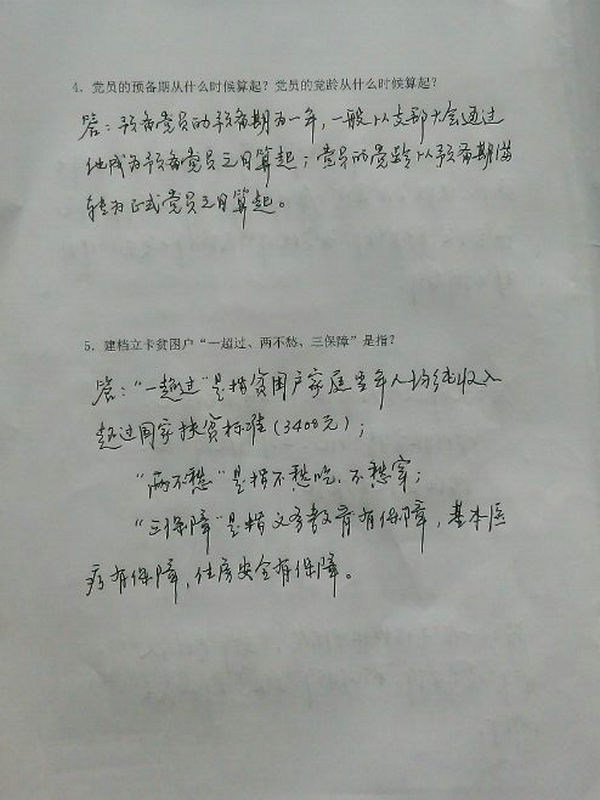 4、党员的预备期从什么时候算起？党员的党龄从什么时候算起？
答：预备党员的预备期为一年，一般从支部大会通过
他成为预备党员之日算起；党员的党龄从预备期满
转为正式党员之日算起。
5、建档立卡贫困户“一超过、两不愁、三保障”是指？
答：“一超过”是指贫困户家庭当年人均纯收入
超过国家扶贫标准(3400元)；
“两不愁”是指不愁吃、不愁穿；
“三保障”是指义务教育有保障，基本医
疗有保障，住房安全有保障。